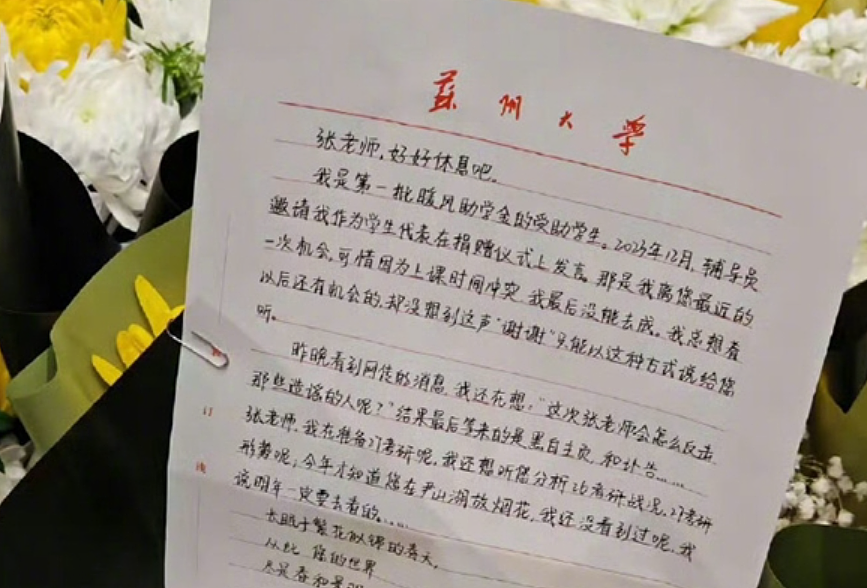 蘇州大学
张老师,好好休息吧。
我是第一批暖风助学金的受助学生。2023年12月,辅导员
邀请我作为学生代表在捐赠仪式上发言。那是我离您最近的
一次机会,可惜因为上课时间冲突,我最后没能去成。我总想着
以后还有机会的,却没想到这声“谢谢”只能以这种方式说给您
听。
昨晚看到网传的消息,我还在想,“这次张老师会怎么反击
那些造谣的人呢?”结果最后等来的是黑白主页,和讣告……
张老师,我在准备27考研呢,我还想听您分析26考研战况,27考研
形势呢;今年才知道您在尹山湖放烟花,我还没看到过呢,我
说明年一定要去看的……
长眠于繁花似锦的春天。
从此 您的世界
尽是春和景明
订
线